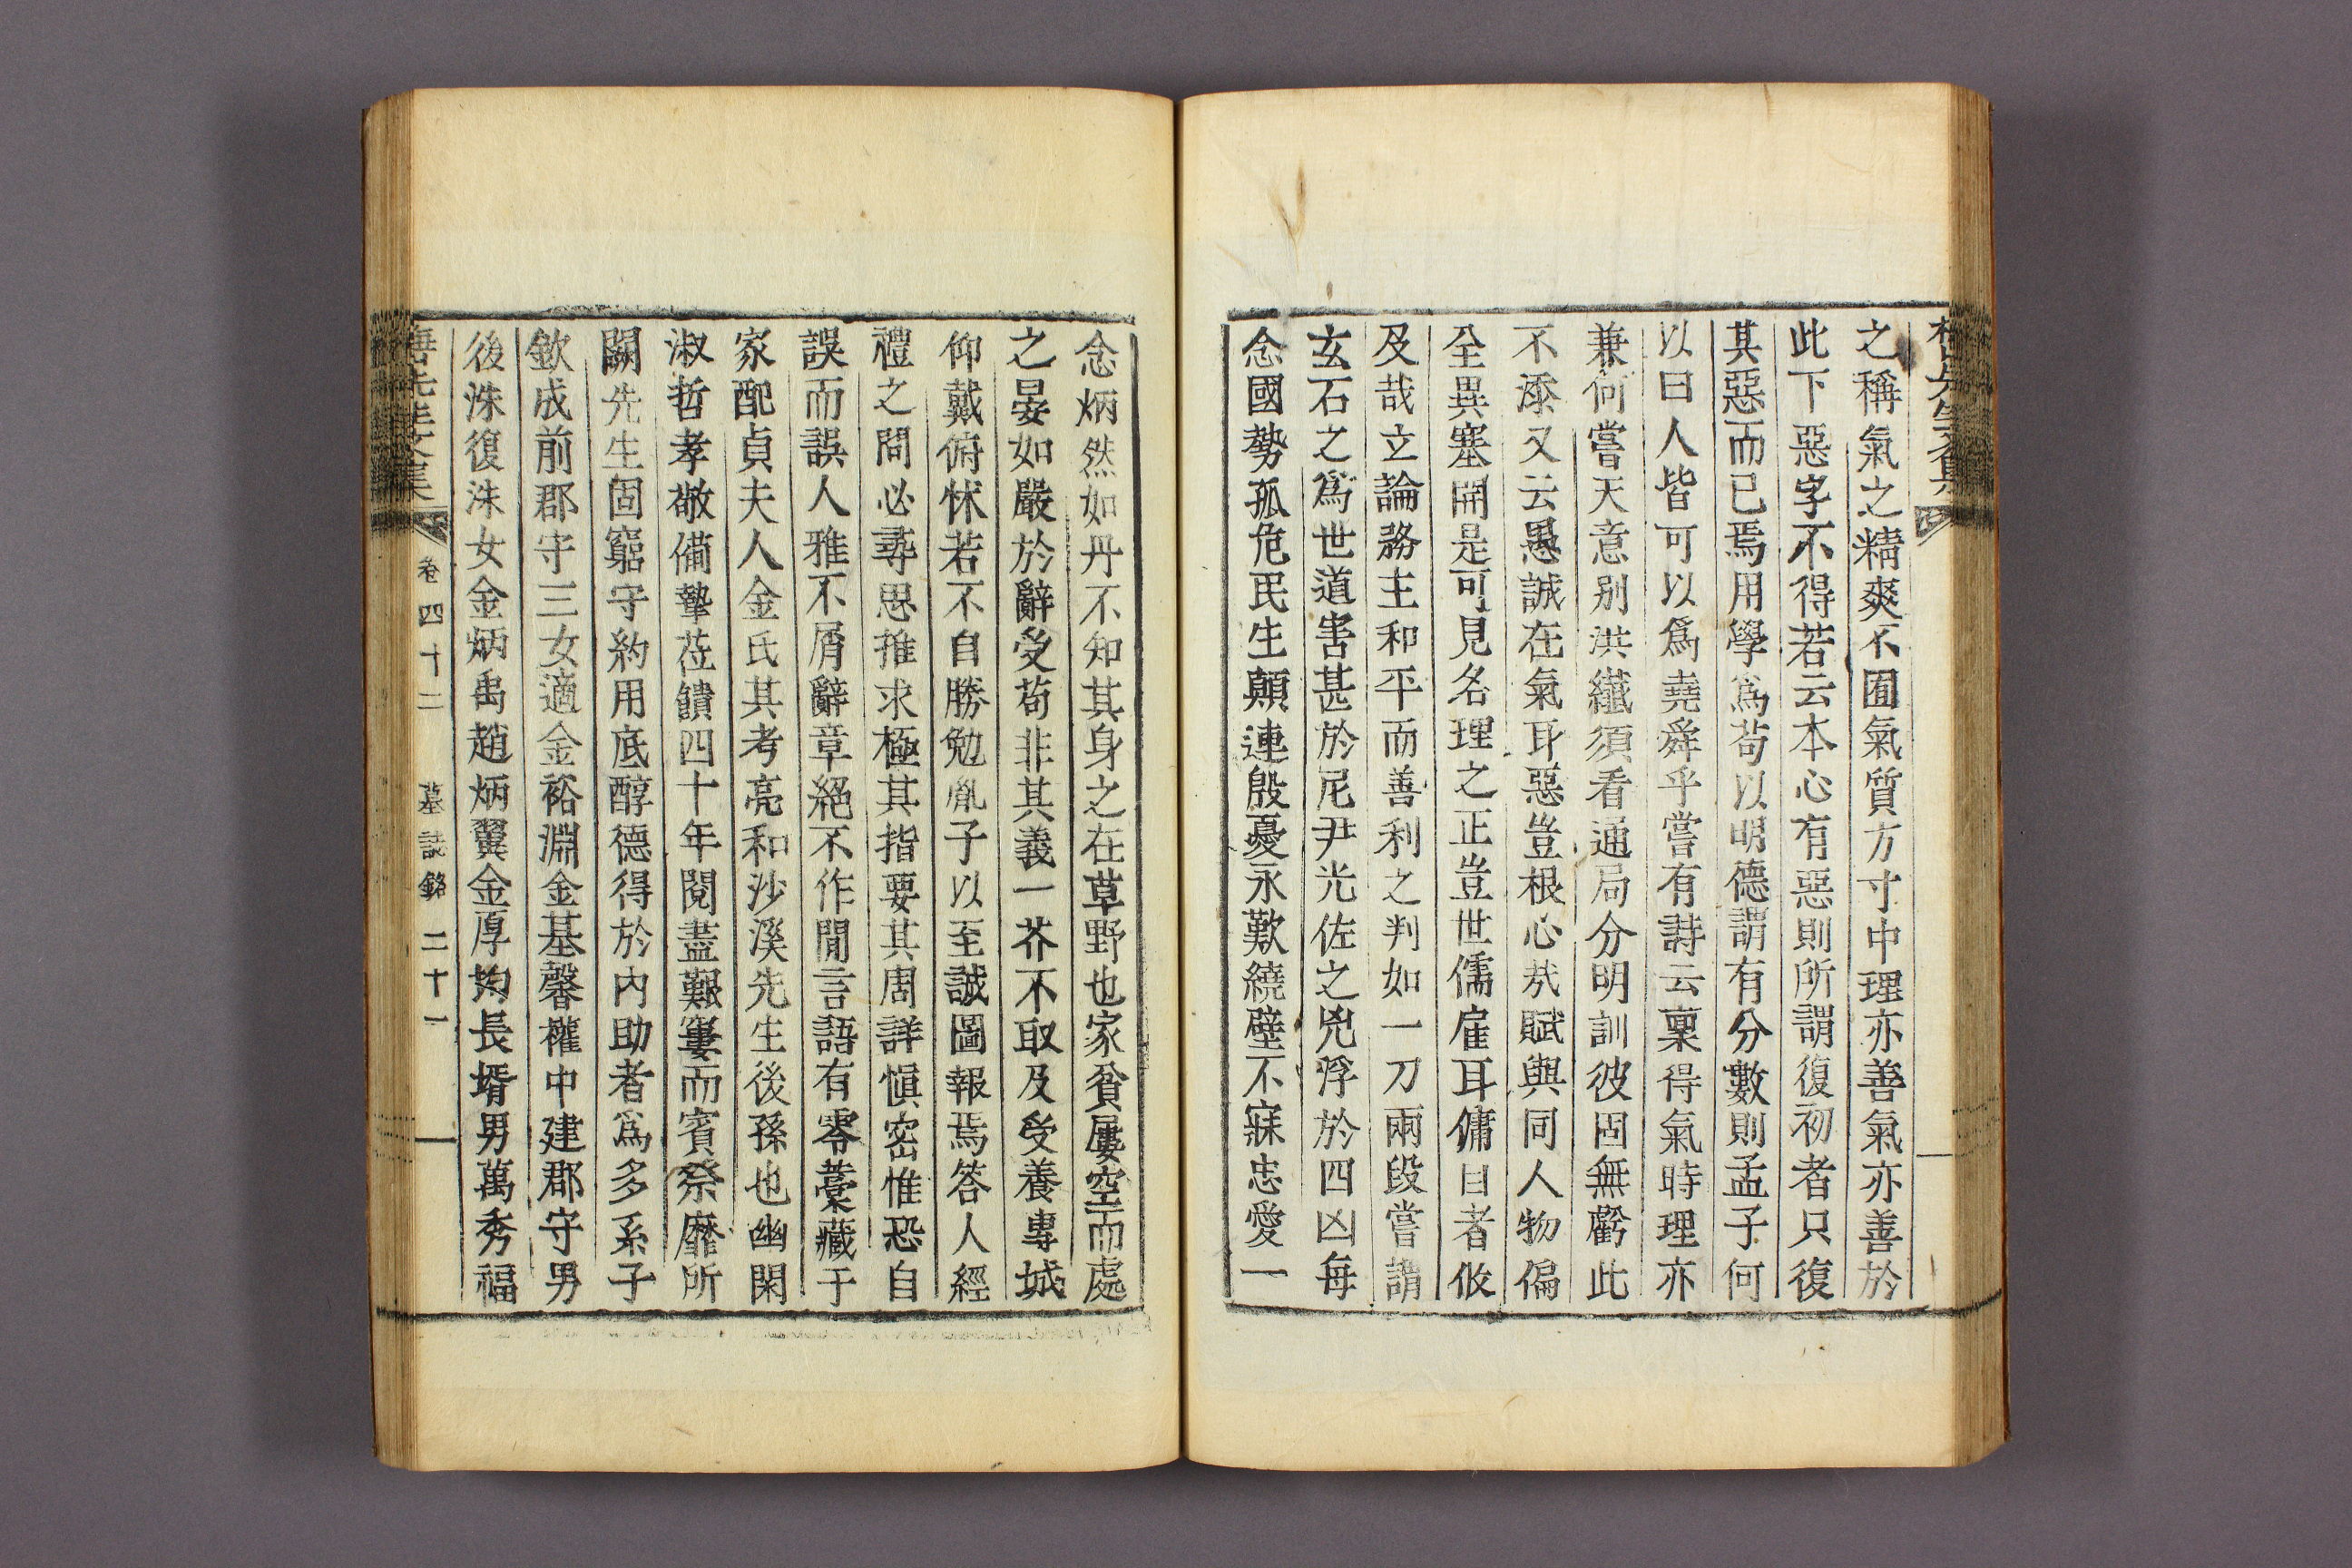 之稱氣之精爽不囿氣質方寸中理亦善氣亦善於
此下惡字不得若云本心有惡則所謂復初者只復
其惡而已焉用學爲苟以明德謂有分數則孟子何
以曰人皆可以爲堯舜乎嘗有詩云稟得氣時理亦
兼何嘗天意别洪纖須看通局分明訓彼固無虧此
不添又云愚誠在氣耳惡豈根心㢤賦與同人物偏
全異塞開是可見名理之正豈世儒雇耳傭目者攸
及哉立論務主和平而善利之判如一刀兩段嘗謂
玄石之爲世道害甚於尼尹光佐之兇浮於四凶每
念國勢孤危民生顛連殷憂永歎繞壁不寐忠愛一
念炳然如丹不知其身之在草野也家貧屢空而處
之晏如嚴於辭受苟非其義一芥不取及受養專城
仰戴俯怵若不自勝勉胤子以至誠圖報焉答人經
禮之問必尋思推求極其指要其周詳愼密惟恐自
誤而誤人雅不屑辭章絕不作閒言語有零藁藏于
家配貞夫人金氏其考亮和沙溪先生後孫也幽閑
淑哲孝敬備摯莅饋四十年閱盡艱窶而賓祭靡所
闕先生固窮守約用底醇德得於內助者爲多系子
欽成前郡守三女適金裕淵金基馨權中建郡守男
後洙復洙女金炳禹趙炳翼金厚均長壻男萬秀福
卷四十二 墓誌銘 二十一